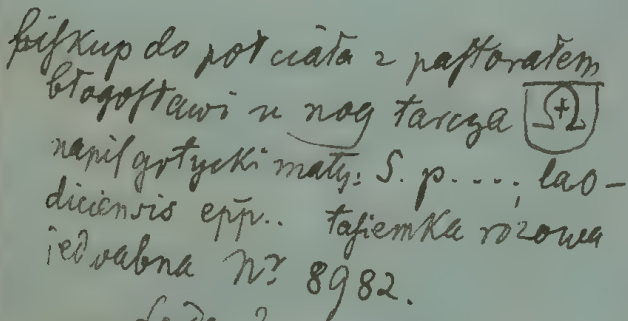 biſkup do poł ciała z paſtorałem
błogoſławi u nog tarcza
napiſ gotycki mały: S. p. ....; lao-
diciensis epp.. taſiemka rożowa
jedvabna Nr. 8982.